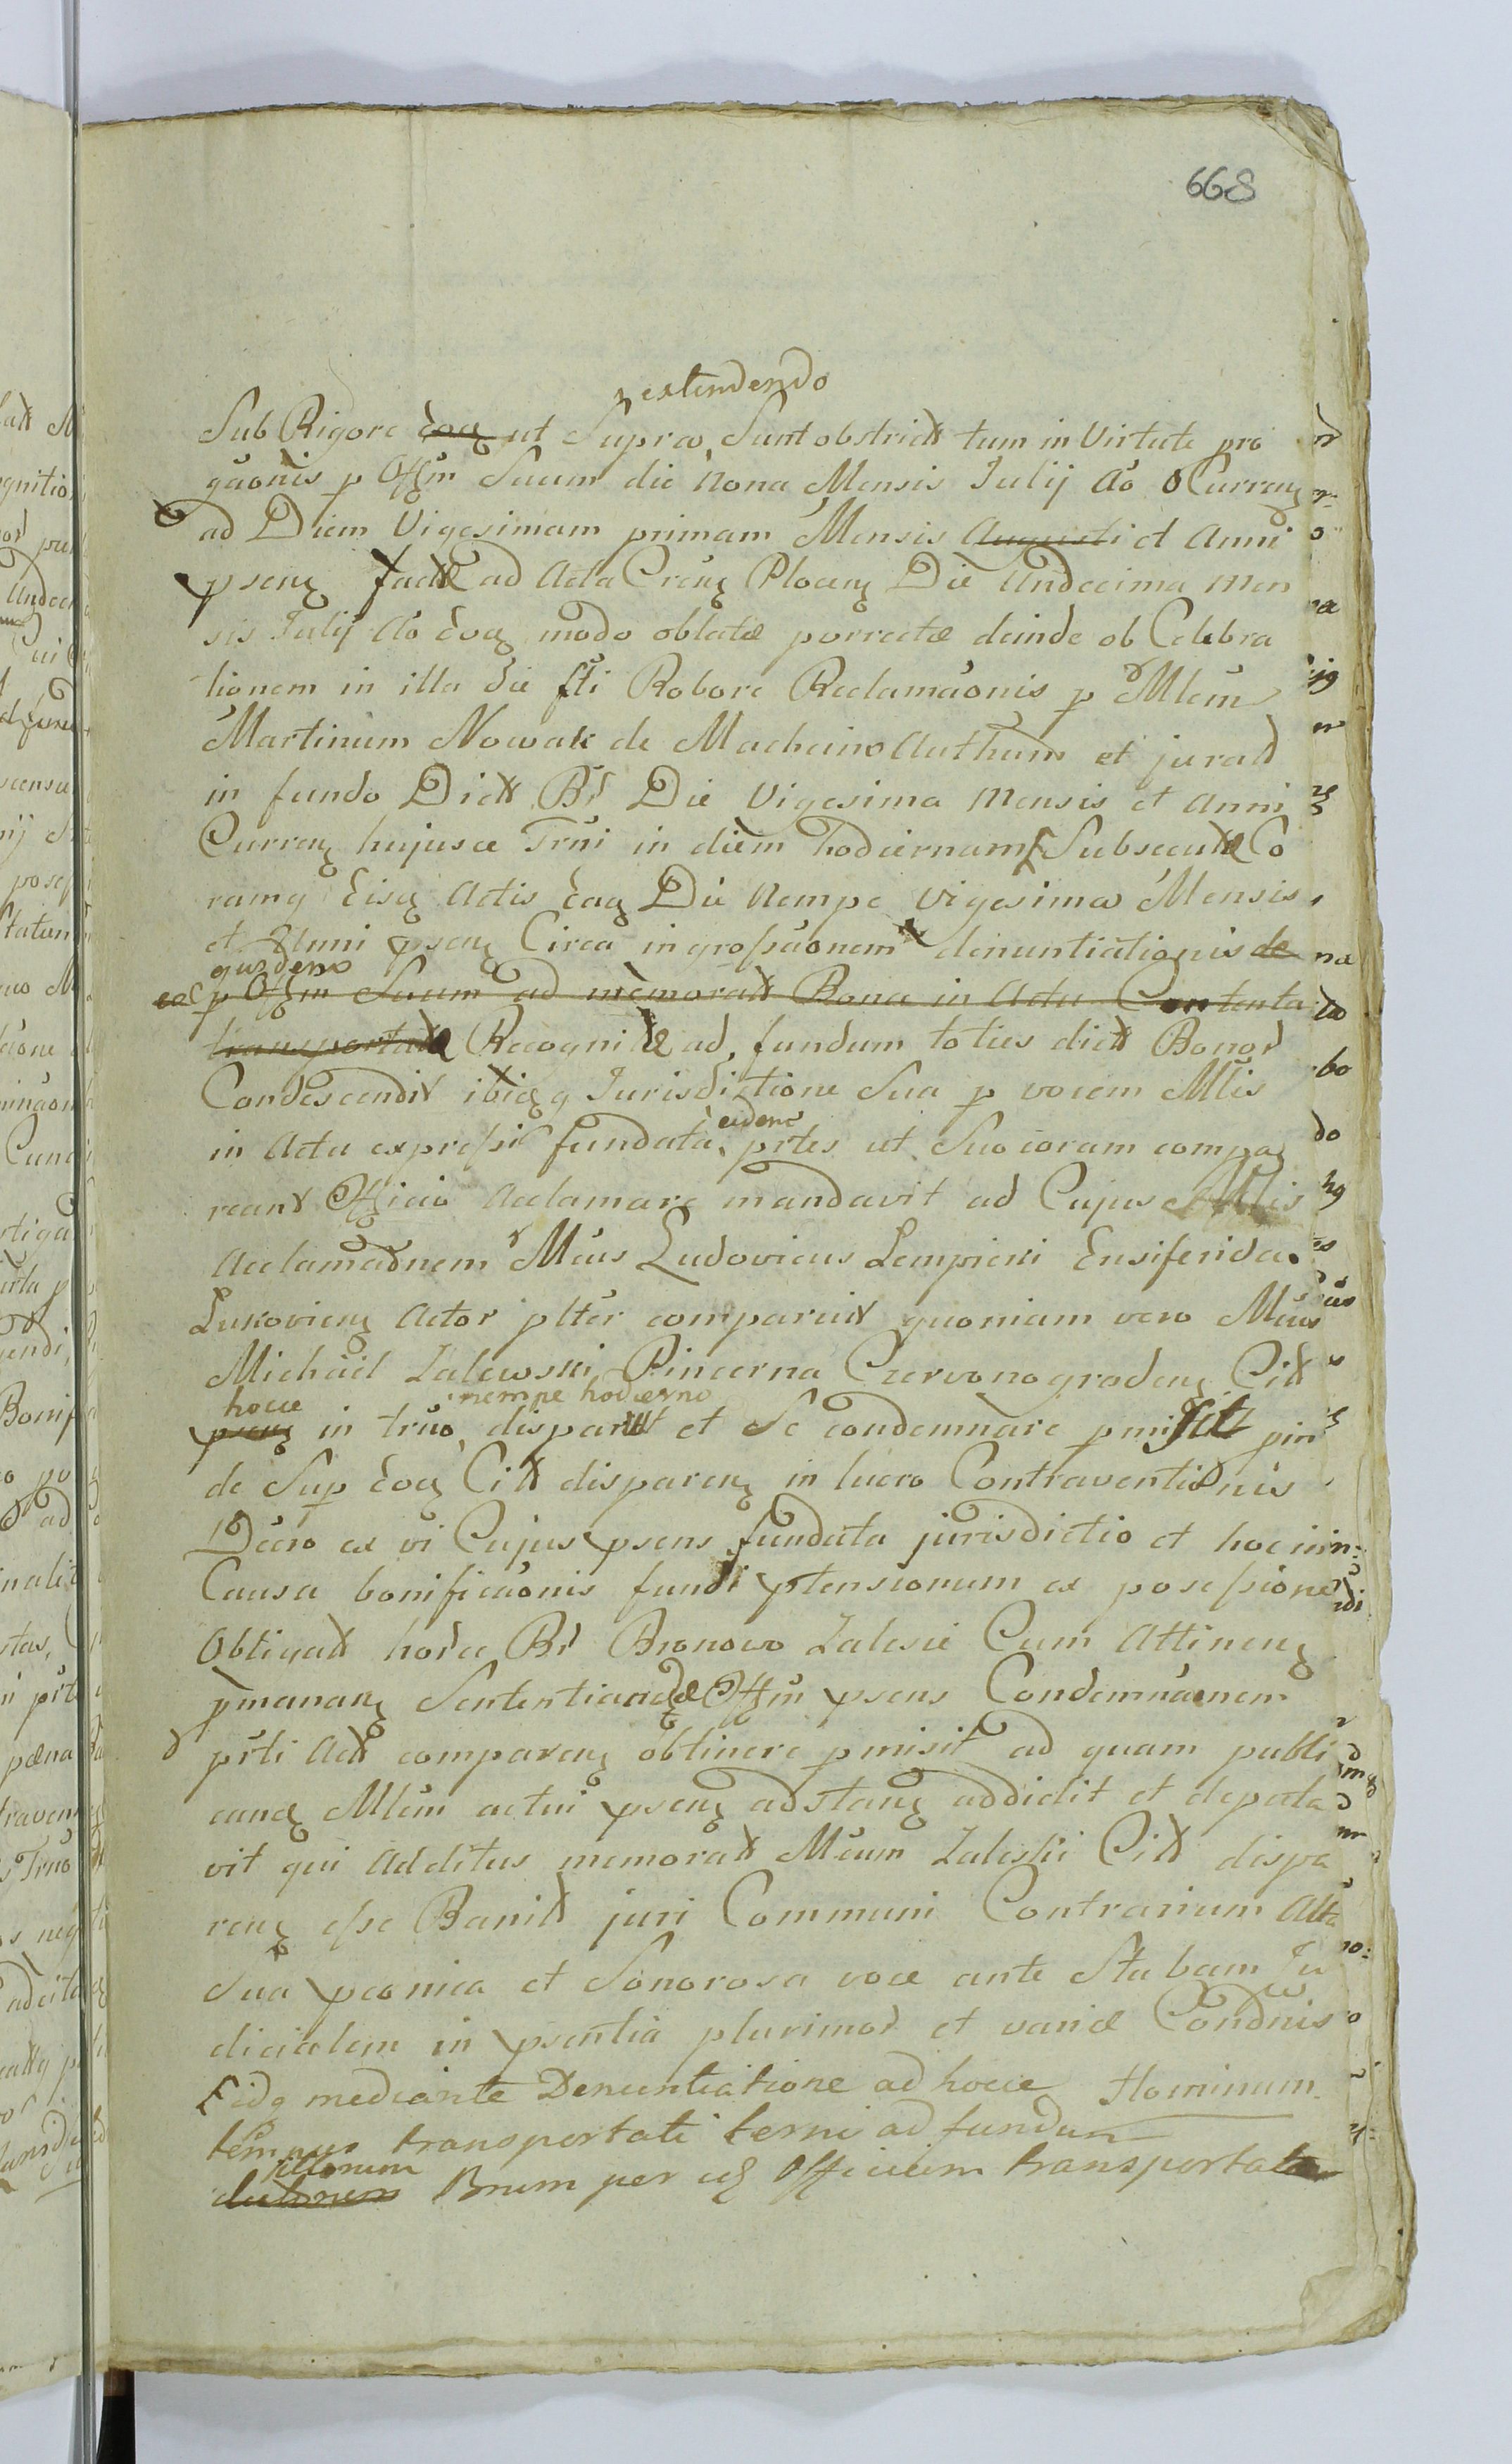 668
extendendo
Sub Rigore eoq ut Supra, Sunt obstrict tum in Virtute pro
quonis p Offm Suum die Nona Mensis Julij Ao Curren
ad Diem Vigesimam primam Mensis Augusti et Anni
psen factæ ad Acta Cren Plocen Die Undecima Men
sis Julij Ao eoq modo oblatæ porrectæ deinde ob Celebra
tionem in illa die fti Robore Reclamaonis p Mlem
Martinum Nowak de Machcino Authum et jurat
in fundo Dict Br Die Vigesima Mensis et Anni
Curren hujusce Trni in diem hodiernum Subsecutæ Co
ramq Eisq Actis eaq Die Nempe Vigesima Mensis
et Anni psen Circa ingrossaonem denuntiationis de
ejusdem
p Offm Suum ad memorat Bona in Actu Contenta
transportatæ Recognitæ ad fundum toties dict Bonor
Condescendit ibiq Jurisdictione Sua p vocem Mlis
in Actu expressi fundata, prtes ut Suo coram compa
eidem
reant Officio Acclamare mandavit ad Cujus Mlis
Acclamaonem Mcus Ludovicus Lempicki Ensiferida
Lukovien Actor plter comparuit quoniam vero Mcus
Michael Zalewski Pincerna Czervonogroden Cit
hocce nempe hodierno
psen in trno, disparuit et Se condemnare pmisit pin
de Sup eoq Cit disparen in lucro Contraventionis
Decro ex vi Cujus psens fundata jurisdictio et hoc in
Causa bonificaonis fundi ptensionum ex possessione
Obligat horce Br Bronowo Zalesie Cum Attinen
pmanan Offm psens Condemnaonem
prti Act comparen obtinere pmisit ad quam publi
cand Mlem actui psen adstan addidit et deputa
vit qui Additus memorat Mcum Zaleski Cit dispa
ren esse Banit juri Communi Contrarium Alta
Sua pconica et Sonorosa voce ante Stubam Ju
dicialem in psentia plurimor et variæ Condnis
Hominum
Eidq mediante Denuntiatione ad hocce
tempus transportati termi ad fundum
illorum
Bnum per id Officium transportata